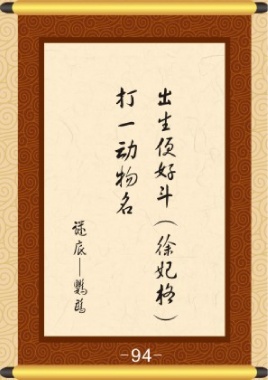 出生便好斗（徐妃格）
打一动物名
谜底——鹦鹉
-94-